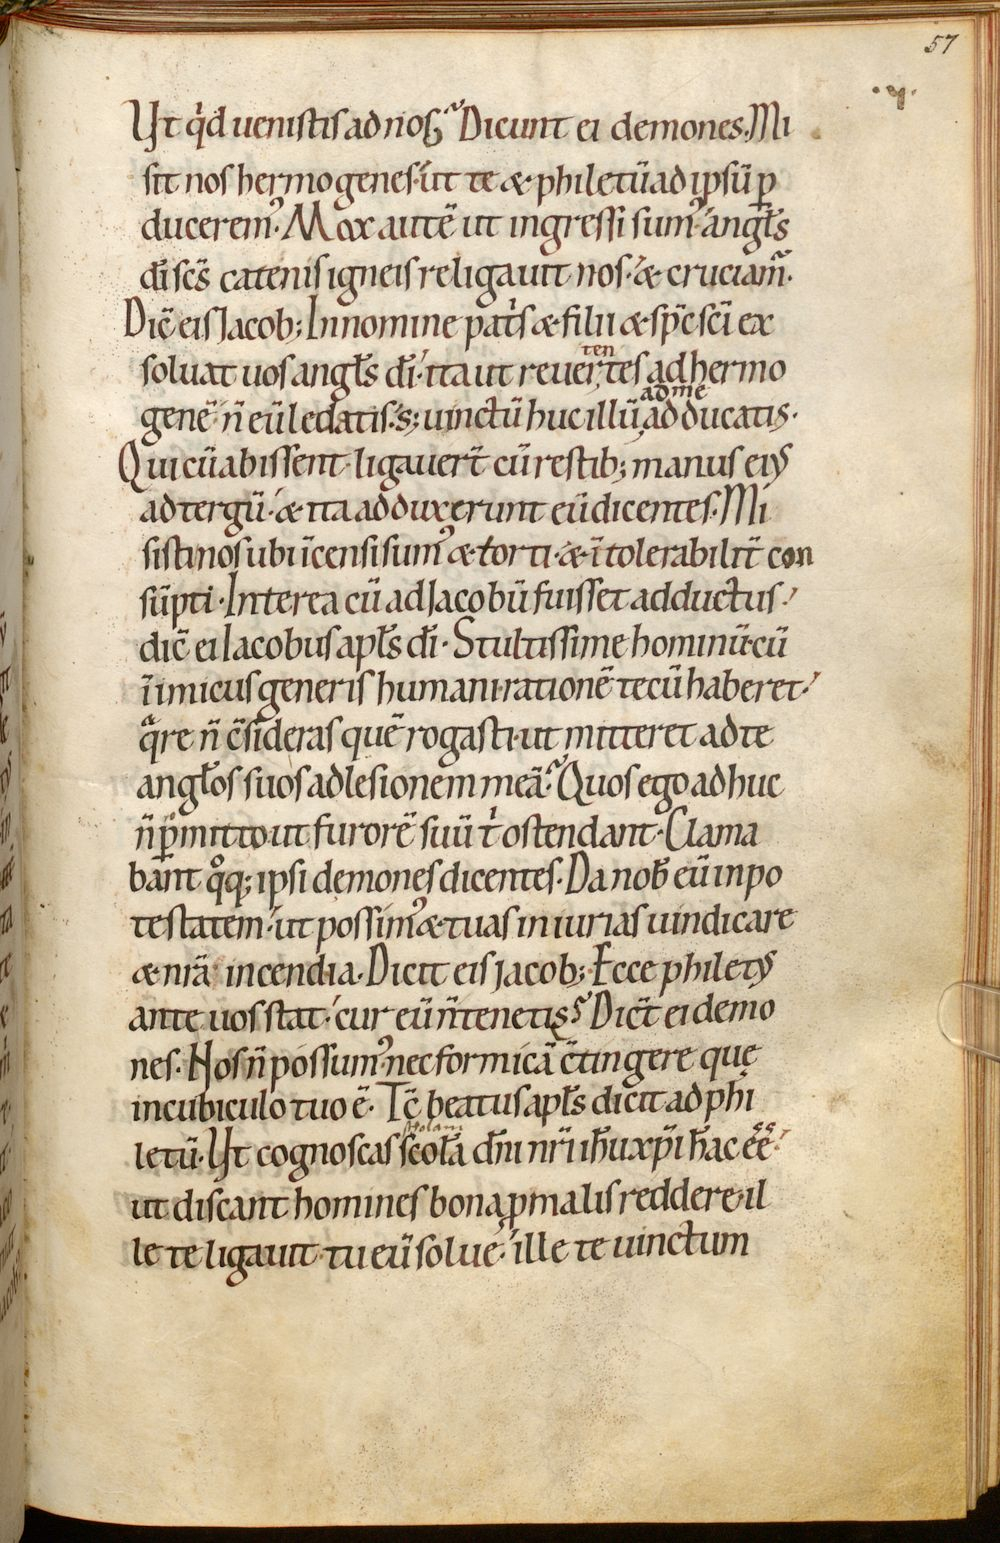 57
Ut qͥd uenistis ad nos? Dicunt ei demones. Mi
sit nos hermogenes. ut te & philetū ad ipsū ꝑ
duceremꝰ. Mox autē ut ingressi sumꝰ. angl̄s
dī sc̄s catenis igneis religauit nos. & cruciam̄.
Dic̄ eis Jacob; In nomine pat̍s & filii & sp̄c sc̄i ex
soluat uos angl̄s dī. ita ut reuertes ad hermo
ten
genē n̄ eū ledatis. s; uinctū huc illū, adducatis.
ad me
Qui cū abissent. ligauer̄ cū restib; manus eiꝰ
ad tergū. & ita adduxerunt eū dicentes. Mi
sisti nos ubi īcensi sumꝰ & torti. & ītolerabilit̄ con
sūpti. Interea cū ad Jacobū fuisset adductus.
dic̄ ei Iacobus apl̄s dī. Stultissime hominū. cū
īimicus generis humani. rationē tecū haberet.
qͣre n̄ c̄sideras quē rogasti. ut mitteret ad te
angl̄os suos ad lesionem meā? Quos ego adhuc
n̄ ꝑmitto ut furorē suū t̍ ostendant. Clama
bant qͦq; ipsi demones dicentes. Da nob̄ eū in po
testatem. ut possimꝰ & tuas iniurias uindicare
& nr̄a incendia. Dicit eis jacob; Ecce philetꝰ
ante uos stat. cur eū n̄ tenetis? Dic̄t ei demo
nes. Nos n̄ possumꝰ nec formicā c̄tingere quę
in cubiculo tuo ē. Tc̄ beatus apl̄s dicit ad phi
letū. Ut cognoscas scol̄ā dn̄i nr̄i ih̄u xp̄i h̄ac ēē.
scolam
ut discant homines bona ꝓ malis reddere. il
le te ligauit. tu eū solue. ille te uinctum